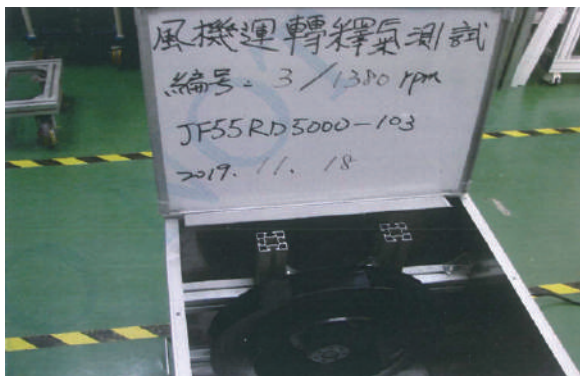 風機運轉釋氣測試
編号: 3/1380 rpm
JF55RD5000-103
2019. 11. 18